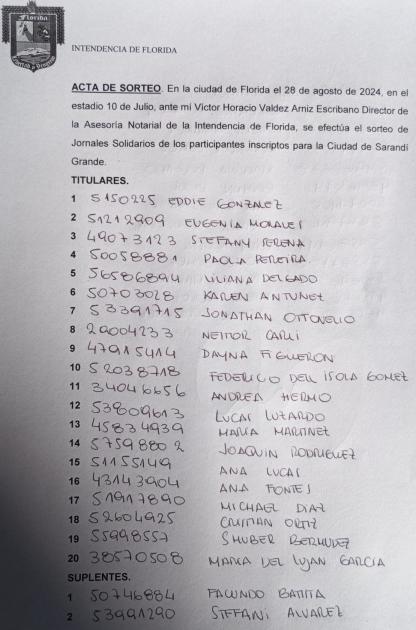 Florida
INTENDENCIA DE FLORIDA
ACTA DE SORTEO. En la ciudad de Florida el 28 de agosto de 2024, en el
estadio 10 de Julio, ante mi Victor Horacio Valdez Arniz Escribano Director de
la Asesoría Notarial de la Intendencia de Florida, se efectúa el sorteo de
Jornales Solidarios de los participantes inscriptos para la Ciudad de Sarandí
Grande.
TITULARES.
1 5150225 EDDIE GONZALEZ
2 51212909 EUGENIA MORALES
3 49073123 STEFANY PERENA
4 50058881 PAOLA PEREIRA
5 56586894 LILIANA DELGADO
6 50703028 KAREN ANTUNEZ
7 53391715 JONATHAN OTTONELLO
8 29004233 NEITOR
9 47915414 DAYNA FIGUERON
10 52038718 FEDERICO DELL ISOLA GOMEZ
11 34046656 ANDREA HERMO
12 53809613 LUCAS LUZARDO
13 45834939 MARIA MARTINEZ
14 57598802 JOAQUIN RODRIGUEZ
15 51155149 ANA LUCAS
16 43143904 ANA FONTES
17 51917890 MICHAEL DIAZ
18 52604925 CRISTIAN ORTIZ
19 55998557 SHUBER BERMUDEZ
20 38570508 MARIA DEL LUJAN GARCÍA
SUPLENTES.
1 50746884 FACUNDO BATISTA
2 53991290 STEFANI ALVAREZ